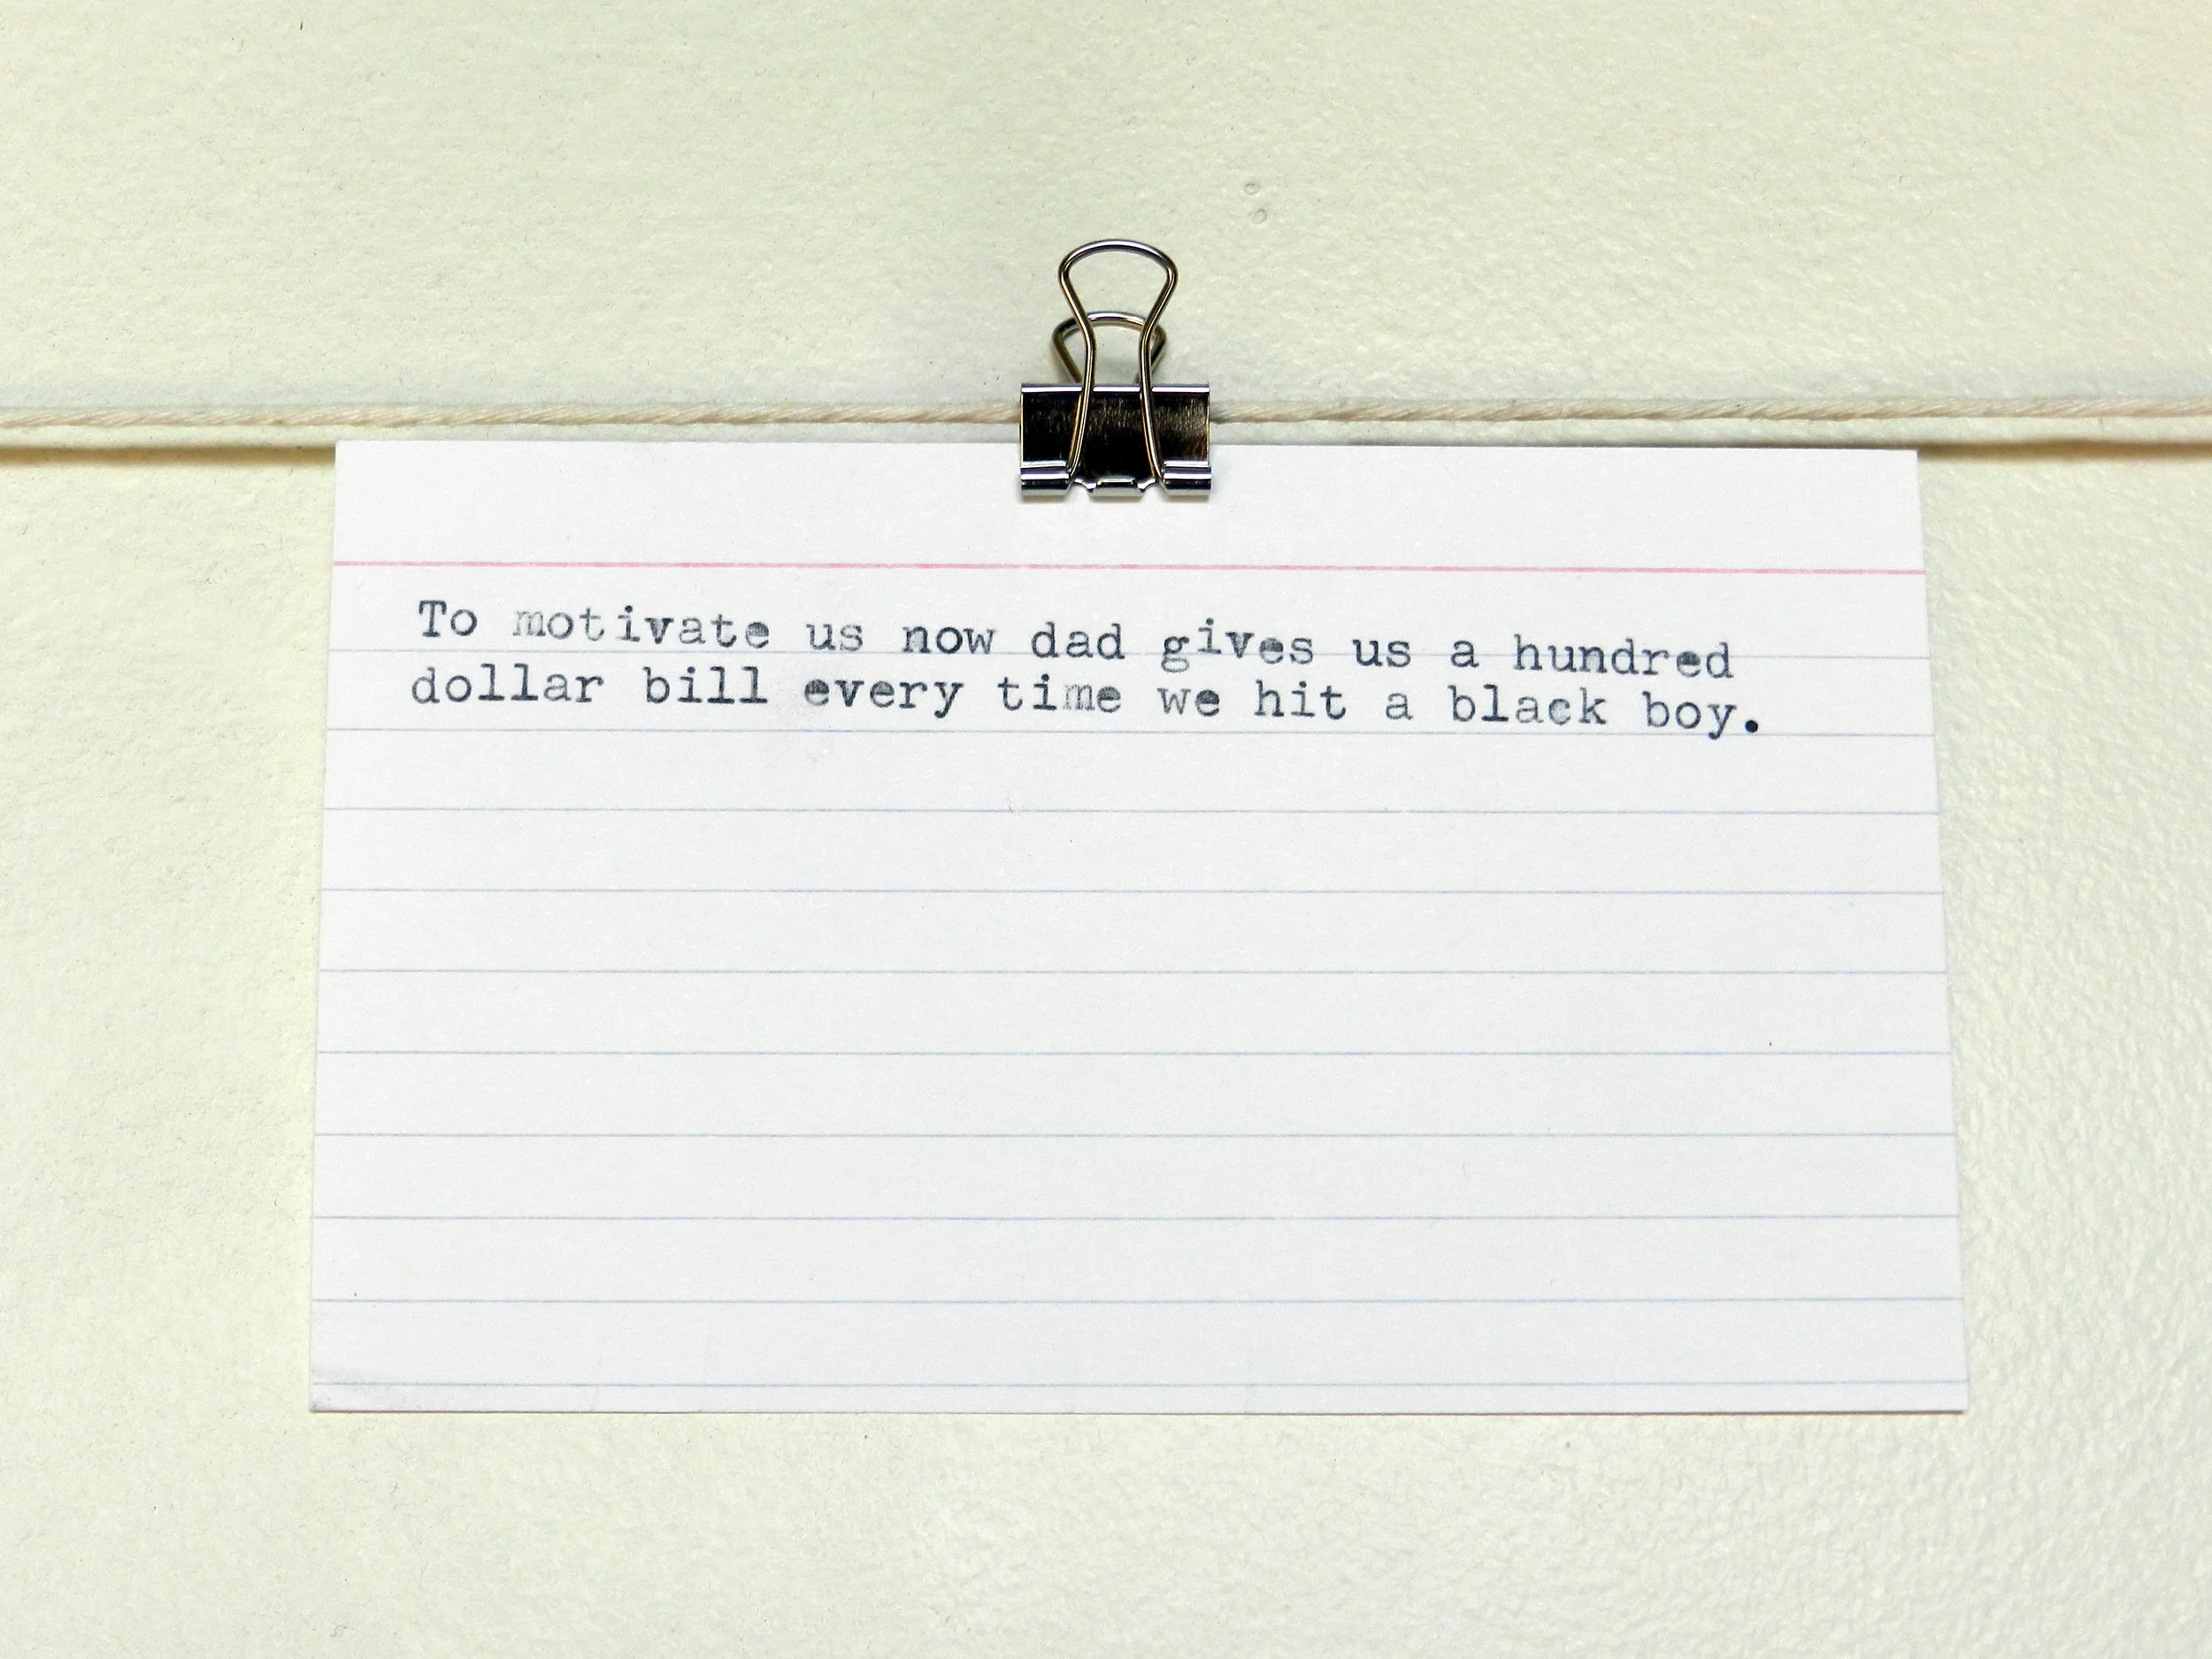 To motivate us now dad gives us a hundred
dollar bill every time we hit a black boy.